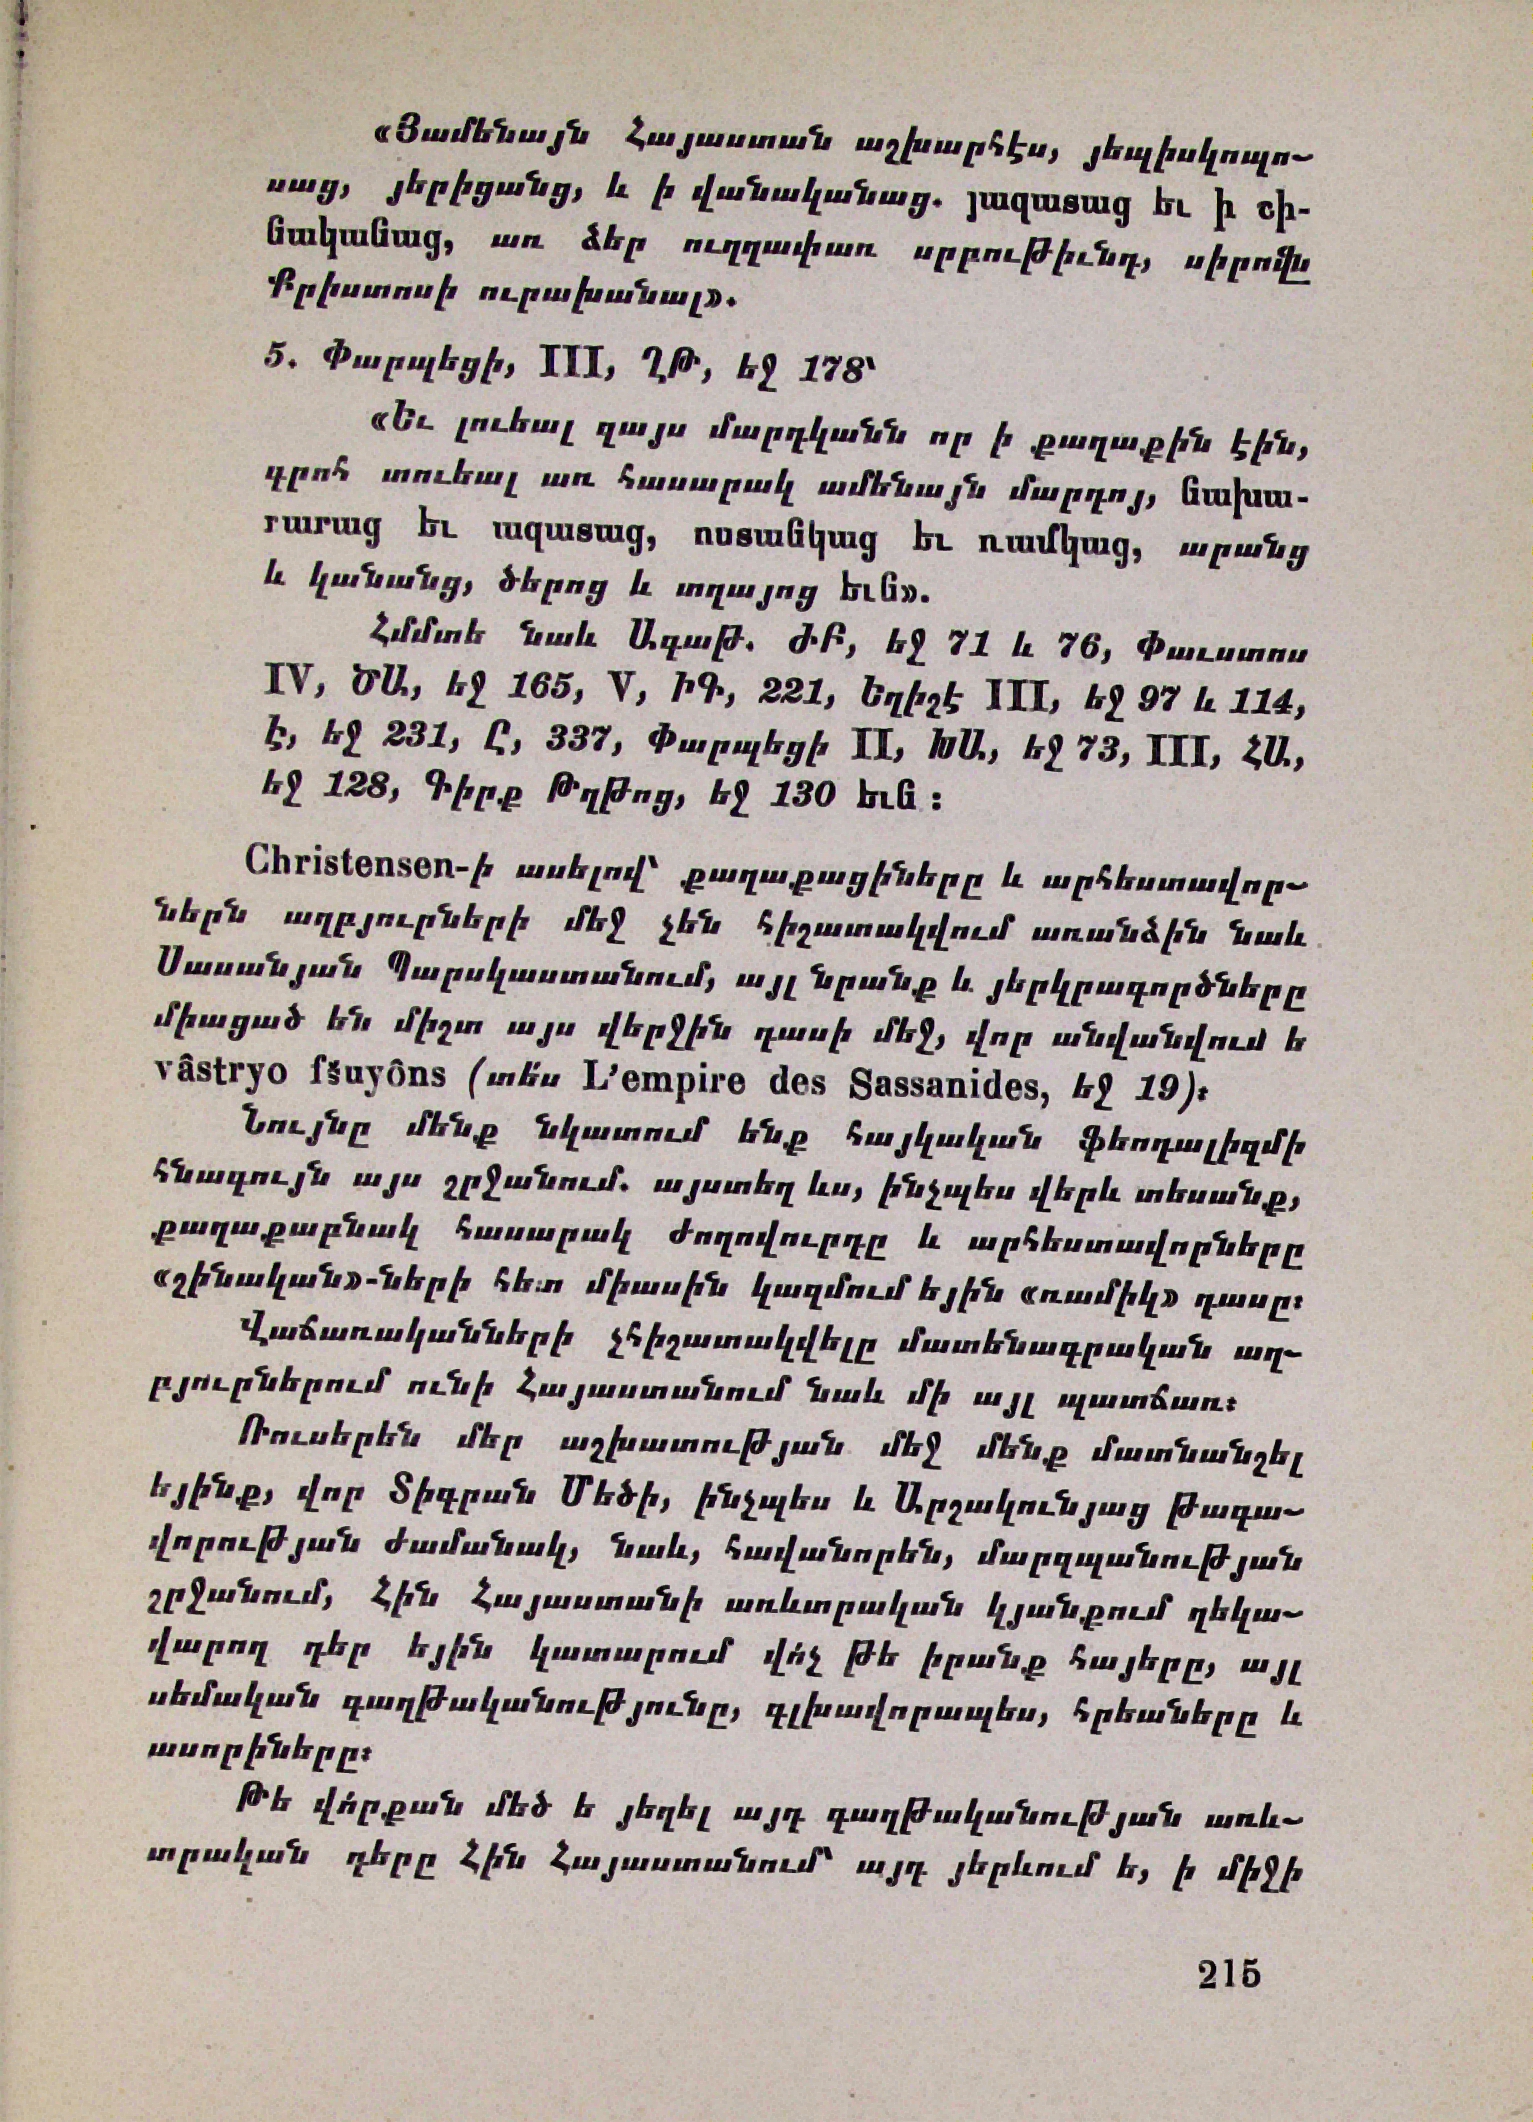 «Յամենայն Հայաստան աշխարհէս, յեպիսկոպո-
սաց, յերիցանց, և ի վանականաց. յազատաց եւ ի շի-
նականաց, առ ձեր ուղղափառ սրբութիւնդ, սիրովն
Քրիստոսի ուրախանալ».
5. Փարպեցի, III, ՂԹ, եջ 178՝
«Եւ լուեալ զայս մարդկանն որ ի քաղաքին էին,
գրոհ տուեալ առ հասարակ ամենայն մարդոյ, նախա-
րարաց եւ ազատաց, ոստանկաց եւ ռամկաց, արանց
և կանանց, ծերոց և տղայոց եւն».
Հմմտե նաև Ագաթ. ԺԲ, եջ 71 և 76, Փաւստոս
IV, ԾԱ, եջ 165, V, ԻԳ, 221, Եղիշէ III, եջ 97 և 114,
Է, եջ 231, Ը, 337, Փարպեցի II, ԽԱ, եջ 73, III, ՀԱ,
եջ 128, Գիրք Թղթոց, եջ 130 եւն :
Christensen-ի ասելով՝ քաղաքացիները և արհեստավոր-
ներն աղբյուրների մեջ չեն հիշատակվում առանձին նաև
Սասանյան Պարսկաստանում, այլ նրանք և յերկրագործները
միացած են միշտ այս վերջին դասի մեջ, վոր անվանվում ե
vâstryo fšuyôns (տե՛ս L’empire des Sassanides, եջ 19)։
Նույնը մենք նկատում ենք հայկական ֆեոդալիզմի
հնագույն այս շրջանում. այստեղ ևս, ինչպես վերև տեսանք,
քաղաքաբնակ հասարակ ժողովուրդը և արհեստավորները
«շինական»-ների հետ միասին կազմում եյին «ռամիկ» դասը։
Վաճառականների չհիշատակվելը մատենագրական աղ-
բյուրներում ունի Հայաստանում նաև մի այլ պատճառ։
Ռուսերեն մեր աշխատության մեջ մենք մատնանշել
եյինք, վոր Տիգրան Մեծի, ինչպես և Արշակունյաց թագա-
վորության ժամանակ, նաև, հավանորեն, մարզպանության
շրջանում, Հին Հայաստանի առևտրական կյանքում ղեկա-
վարող դեր եյին կատարում վո՛չ թե իրանք հայերը, այլ
սեմական գաղթականությունը, գլխավորապես, հրեաները և
ասորիները։
Թե վո՛րքան մեծ ե յեղել այդ գաղթականության առև-
տրական դերը Հին Հայաստանում՝ այդ յերևում ե, ի միջի
215